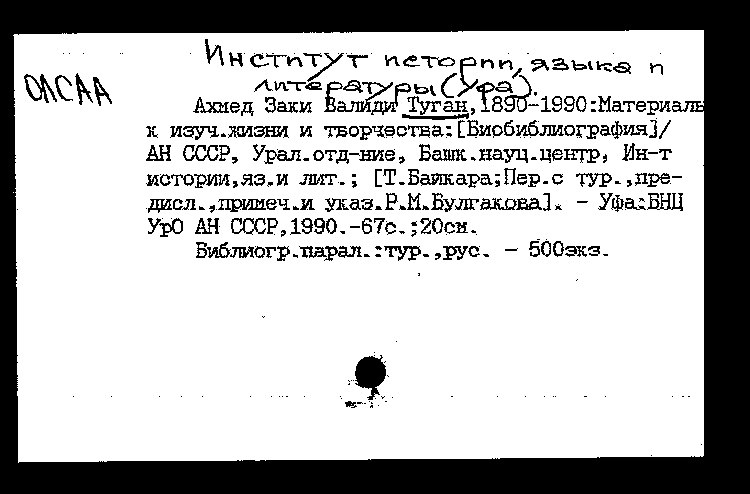 Институт истории, языка и
литературы (Уфа).
ОЛСАА
Ахмед Заки Валиди Туган,1890-1990:Материалы
к изуч.жизни и творчества:[Биобиблиография]/
АН СССР, Урал.отд-ние, Башк.науц.центр, Ин-т
истории,яз.и лит.; [Т.Байкара;Пер.с тур.,пре-
дисл.,примеч.и указ.Р.М.Булгакова]. - Уфа:БНЦ
УрО АН СССР,1990.-67с.;20см.
Библиогр.парал.:тур.,рус. - 500экз.